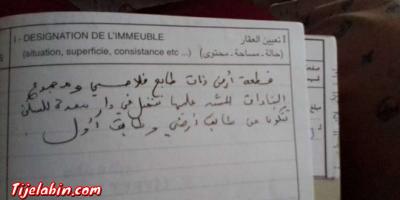 I - DESIGNATION DE L'IMMEUBLE
(situation, superficie, consistance etc ...)
I تعيين العقار
(حالة - مساحة - محتوى)
قطعة أرض ذات طابع فلاحي و مجموع
البنايات المشيدة عليها تتمثل في دار معدة للسكن
تتكون من طابق أرضي وطابق أول
Tijelabin.com